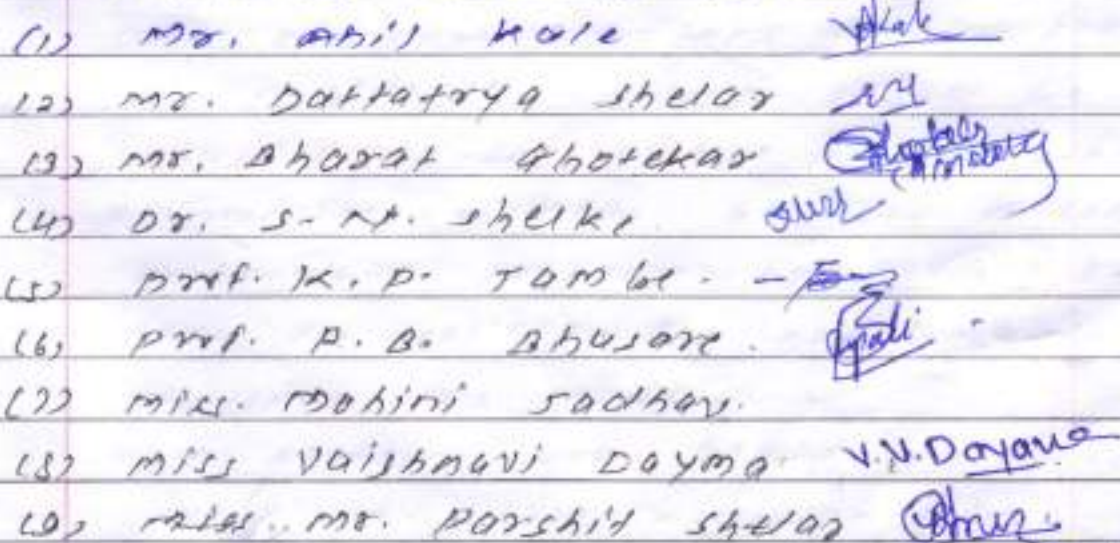 (1) Mr. Anil Kale
(2) Mr. Dattatrya Shelar
(3) Mr. Bharat Ghotekar
(4) Dr. S. M. Shelke
(5) Prof. K. P. Tambe.
(6) Prof. P. B. Bhusare.
(7) Miss. Mohini Jadhav.
(8) Miss Vaishnavi Dayma V.V.Dayama
(9) Mr. Parshit Shelar